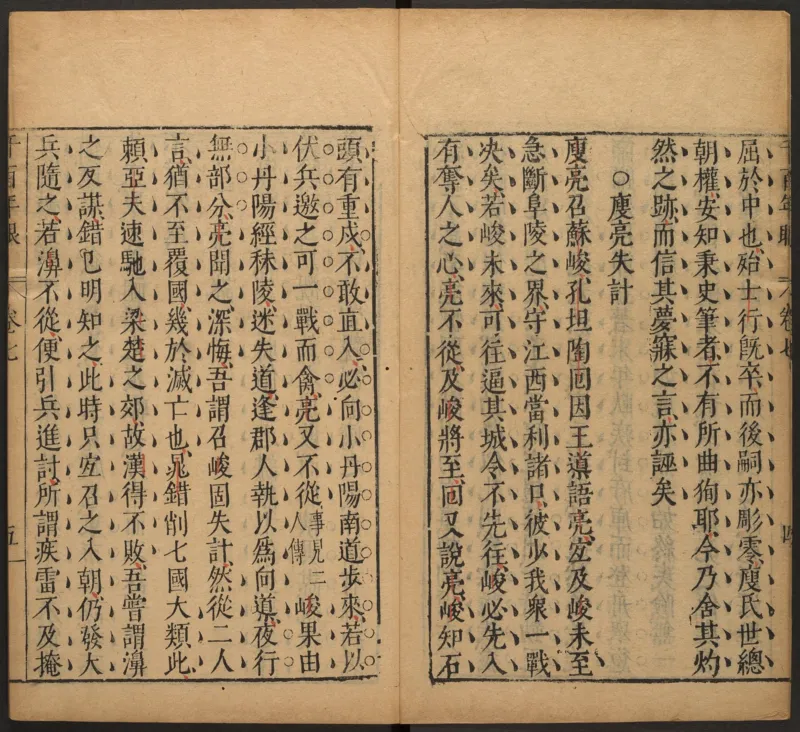 屈於中也、殆士行旣卒、而後嗣亦彫零、庾氏世總
朝權、安知秉史筆者、不有所曲狥耶、今乃舍其灼
然之跡、而信其夢寐之言、亦誣矣
○庾亮失計
庾亮召蘇峻、孔坦陶囘因王導語亮、宜及峻未至
急斷阜陵之界、守江西當利諸口、彼少我衆、一戰
决矣、若峻未來、可往逼其城、今不先往、峻必先入
有奪人之心、亮不從、及峻將至、囘又說亮、峻知石
頭有重戍、不敢直入、必向小丹陽南道步來、若以
伏兵邀之、可一戰而禽、亮又不從事見二人傳峻果由
小丹陽經秣陵、迷失道、逢郡人執以爲向導、夜行
無部分、亮聞之深悔、吾謂召峻固失計、然從二人
言、猶不至覆國、幾於滅亡也、晁錯削七國大類此
頼亞夫速馳入梁楚之郊、故漢得不敗、吾嘗謂濞
之反謀、錯已明知之、此時只宜召之入朝、仍發大
兵隨之、若濞不從、便引兵進討、所謂疾雷不及掩
千百年眼
卷七
五